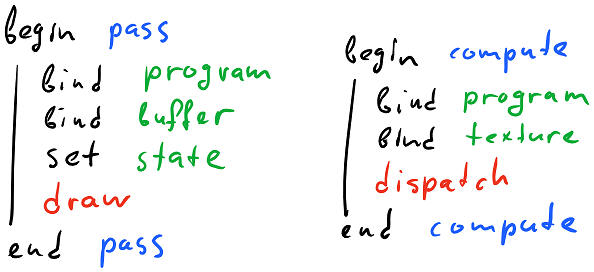 begin pass
bind program
bind buffer
set state
draw
end pass
begin compute
bind program
bind texture
dispatch
end compute